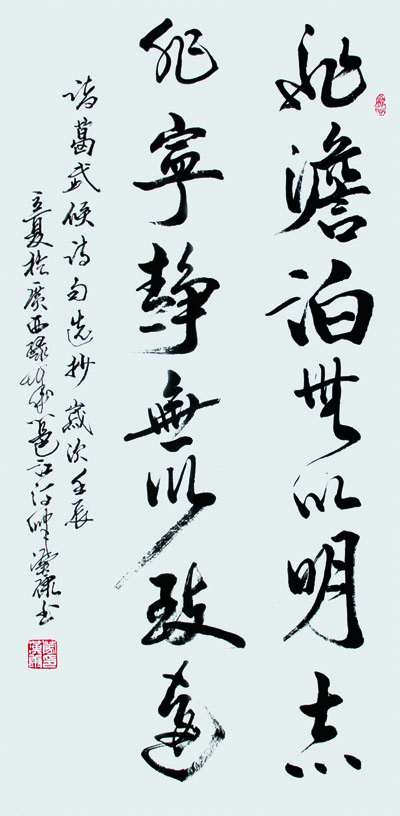 非澹泊無以明志
非寧靜無以致遠
諸葛武侯詩句選抄歲次壬辰
立夏於廣西綠城邕江河畔書